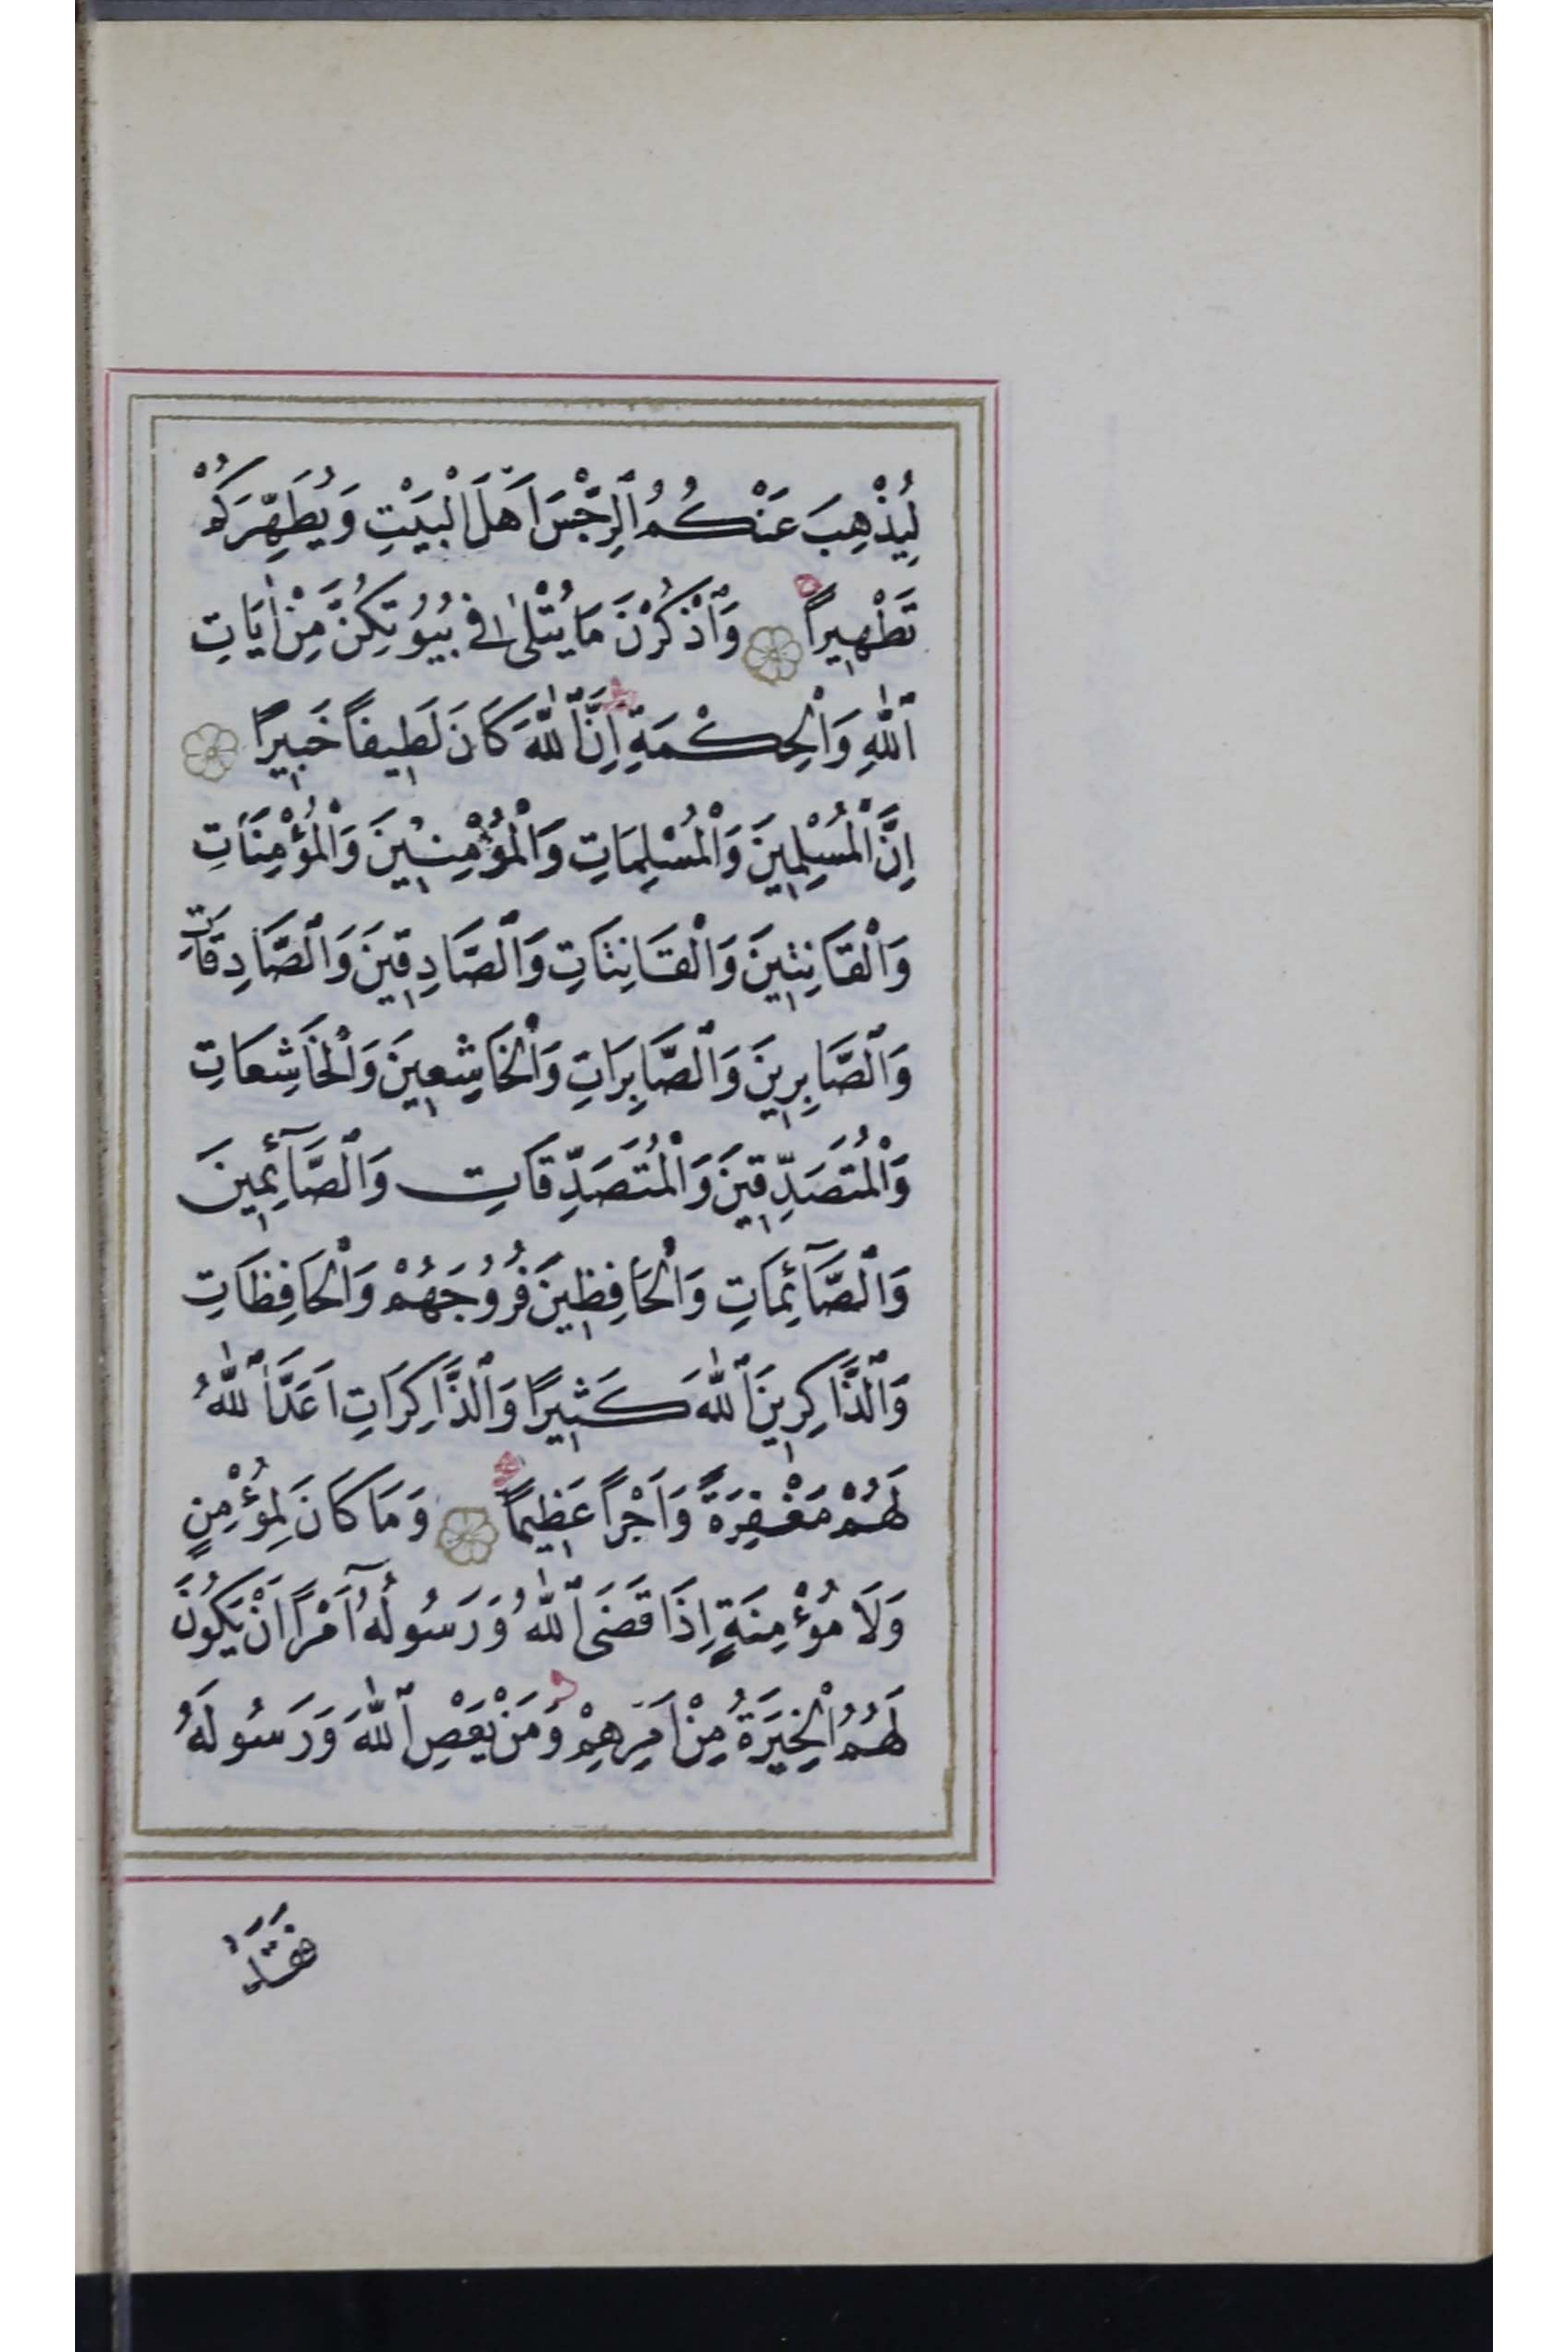 لِيُذْهِبَ عَنْكُمُ ٱلرِّجْسَ اَهْلَ الْبَيْتِ وَيُطَهِّرَكُمْ
تَطْهِيراً وَٱذْكُرْنَ مَا يُتْلىٰ فِي بُيُوتِكُنَّ مِنْ اٰيَاتِ
ٱللّٰهِ وَالْحِكْمَةِ اِنَّ ٱللّٰهَ كَانَ لَطِيفاً خَبِيراً
اِنَّ الْمُسْلِمِينَ وَالْمُسْلِمَاتِ وَالْمُؤْمِنِينَ وَالْمُؤْمِنَاتِ
وَالْقَانِتِينَ وَالْقَانِتَاتِ وَٱلصَّادِقِينَ وَٱلصَّادِقَاتِ
وَٱلصَّابِرِينَ وَٱلصَّابِرَاتِ وَالْخَاشِعِينَ وَالْخَاشِعَاتِ
وَالْمُتَصَدِّقِينَ وَالْمُتَصَدِّقَاتِ وَٱلصَّآئِمِينَ
وَٱلصَّآئِمَاتِ وَالْحَافِظِينَ فُرُوجَهُمْ وَالْحَافِظَاتِ
وَٱلذَّاكِرِينَ ٱللّٰهَ كَثِيرًا وَٱلذَّاكِرَاتِ اَعَدَّ ٱللّٰهُ
لَهُمْ مَغْفِرَةً وَاَجْراً عَظِيماً وَمَا كَانَ لِمُؤْمِنٍ
وَلَا مُؤْمِنَةٍ اِذَا قَضَى ٱللّٰهُ وَرَسُولُهُٓ اَمْراً اَنْ يَكُونَ
لَهُمُ الْخِيَرَةُ مِنْ اَمْرِهِمْ وَمَنْ يَعْصِ ٱللّٰهَ وَرَسُولَهُ
فَقَدْ